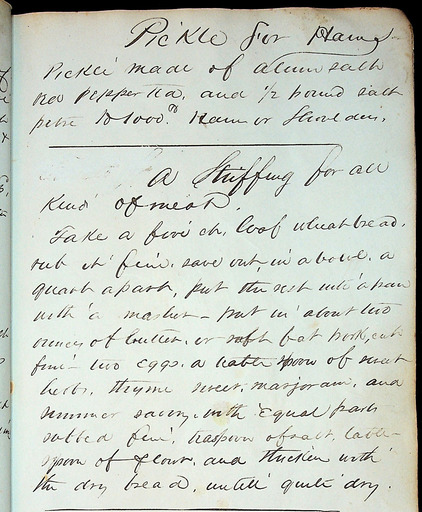 Pickle for Hams
Pickle made of alum salt
red pepper tea, and 1/2 pound salt
petre to 1000 lb Ham or Shoulders.
A Stuffing for all
kind of meat.
Take a five ct, loaf wheat bread,
rub it fine, save out, in a bowl, a
quart apart, put the rest into a pan
with a masher - put in about two
ounces of butter, or salt fat pork, cut
fine - two eggs, a table spoon of sweet
herbs, thyme sweet marjoram, and
summer savory, with equal parts
rubbed fine, teaspoon of salt, table-
spoon of flour, and thicken with
the dry bread, untill quite dry.